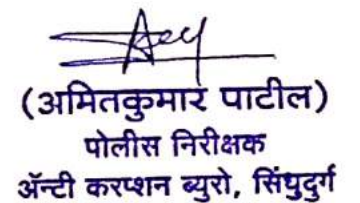 (अमितकुमार पाटील)
पोलीस निरीक्षक
ॲन्टी करप्शन ब्युरो, सिंधुदुर्ग